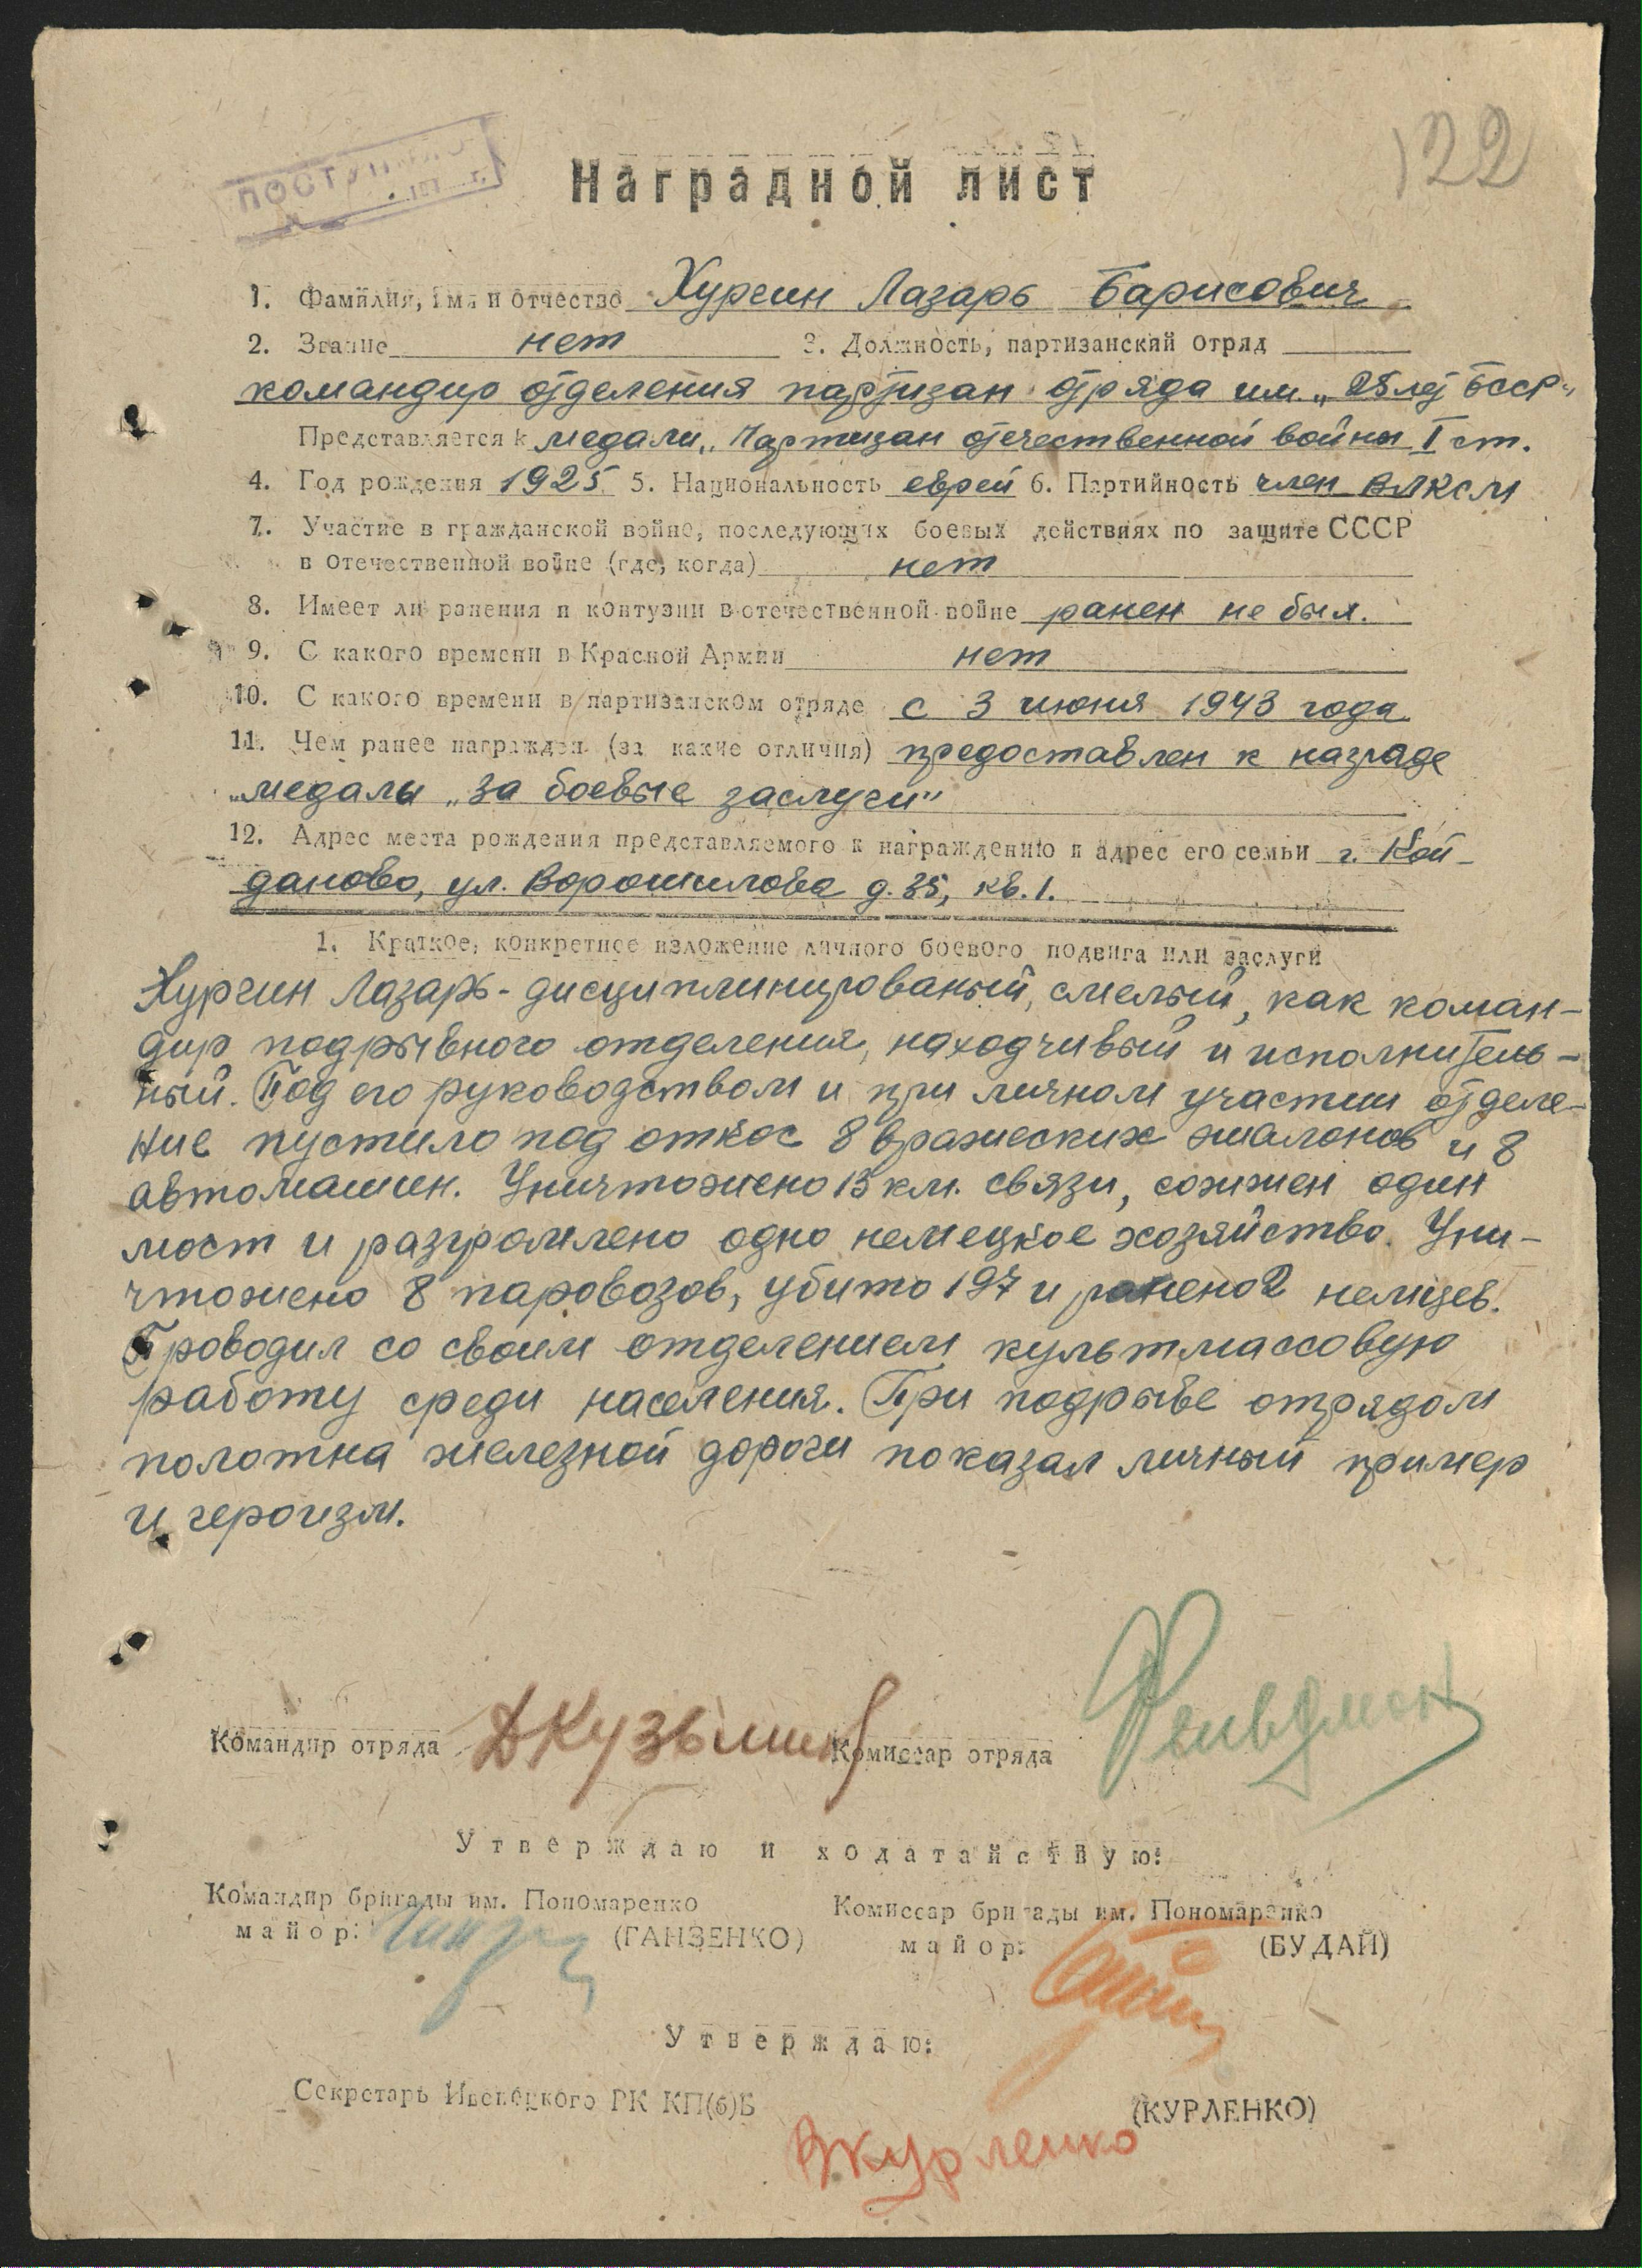 122
ПОСТУПИЛО
Наградной лист
1. Фамилия, имя и отчество Хургин Лазарь Барисович
2. Звание нет 3. Должность, партизанский отряд
командир отделения партизан отряда им. „25 лет БССР"
Представляется к медали „Партизан отечественной войны I ст.
4. Год рождения 1925 5. Национальность еврей 6. Партийность член ВЛКСМ
7. Участие в гражданской войне, последующих боевых действиях по защите СССР
в отечественной войне (где, когда) нет
8. Имеет ли ранения и контузии в отечественной войне ранен не был.
9. С какого времени в Красной Армии нет
10. С какого времени в партизанском отряде с 3 июня 1943 года
11. Чем ранее награжден (за какие отличия) предоставлен к награде
„медалы „за боевые заслуги"
12. Адрес места рождения представляемого к награждению и адрес его семьи г. Кой-
даново, ул. Ворошилова д. 35, кв. 1.
1. Краткое, конкретное изложение личного боевого подвига или заслуги
Хургин Лазарь - дисциплинированый, смелый, как коман-
дир подрывного отделения, находчивый и исполнитель-
ный. Под его руководством и при личном участии отделе-
ние пустило под откос 8 вражеских эшалонов и 8
автомашин. Уничтожено 13 км. связи, сожжен один
мост и разгромлено одно немецкое хозяйство. Уни-
чтожено 8 паровозов, убито 197 и ранено 2 немцев.
Проводил со своим отделением культмассовую
работу среди населения. При подрыве отрядом
полотна железной дороги показал личный пример
и героизм.
Командир отряда ДКузьмин Комиссар отряда
Утверждаю и ходатайствую:
Командир бригады им. Пономаренко Комиссар бригады им. Пономаренко
майор: (ГАНЗЕНКО) майор: (БУДАЙ)
Утверждаю:
Секретарь Ивенецкого РК КП(б)Б (КУРЛЕНКО)
Курленко